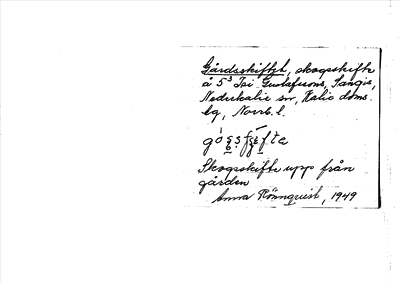 Gårdsskiftet, skogsskifte
å 5³ Isi Gustafsons, Sangis,
Nederkalix sn, Kalix doms.
lg, Norrb. l.
Skogsskifte upp från
gården
Anna Rönnquist, 1949